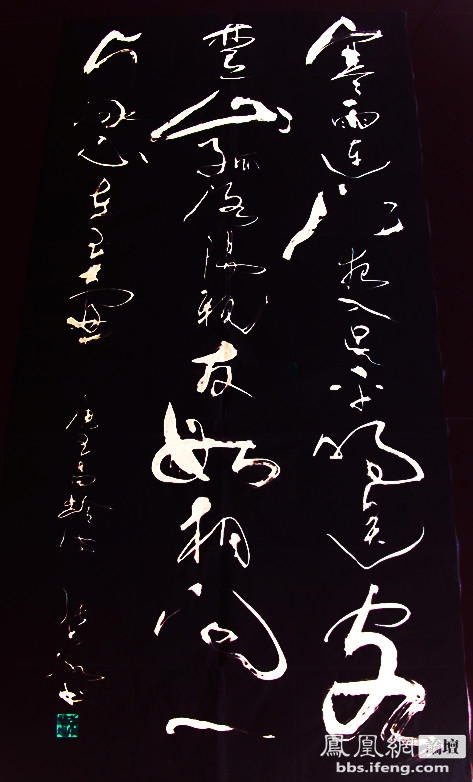 寒雨連江夜入吴平明送客
楚山孤洛陽親友如相问一
片冰心在玉壶 唐王昌齡诗 书
鳳凰網論壇
bbs.ifeng.com